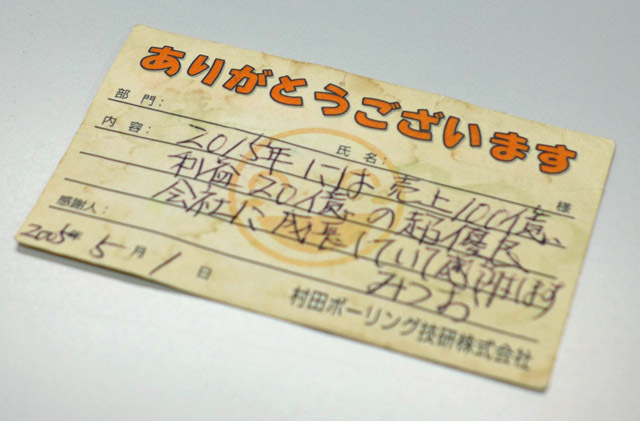 ありがとうございます
部 門:
氏 名: 様
内 容: 2015年には売上100億、
利益20億の超優良
会社に成長していて感謝します
感謝人: みつお
2005年 5月 1日
村田ボーリング技研株式会社